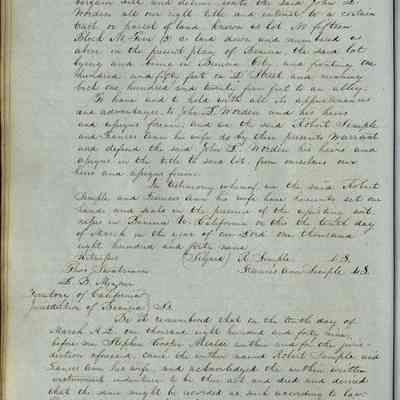 bargain sell and deliver unto the said John L.
Worden all our right title and interest to a certain
tract or parcel of land known as Lot No fifteen
Block No Five (5) as laid down and numbered as
above in the present plan of Benicia, the said lot
lying and being in Benicia City and fronting one
hundred and fifty feet on D Street and running
back one hundred and twenty five feet to an alley.
To have and to hold with all its appurtenances
and advantages to John L. Worden and his heirs
and assigns forever, and we the said Robert Semple
and Frances Ann his wife do by these presents Warrant
and defend the said John L. Worden his heirs and
assigns in the title to said lot, from ourselves our
heirs and assigns forever.
In testimony whereof we the said Robert
Semple and Frances Ann his wife have hereunto set our
hands and seals in the presence of the subscribing wit-
nesses in Benicia U. California on this the tenth day
of March in the year of our Lord one thousand
eight hundred and forty nine
Witnesses (Signed) R. Semple L.S.
Frances Ann Semple L.S.
L. B. Mizner
Territory of California
Jurisdiction of Benicia Sct.
Be it remembered that on the tenth day of
March A.D. one thousand eight hundred and forty nine
before me Stephen Cooper Alcalde within and for the juris-
diction aforesaid, came the within named Robert Semple and
Frances Ann his wife, and acknowledged the within written
instrument indenture to be their act and deed and desired
that the same might be recorded as such according to law